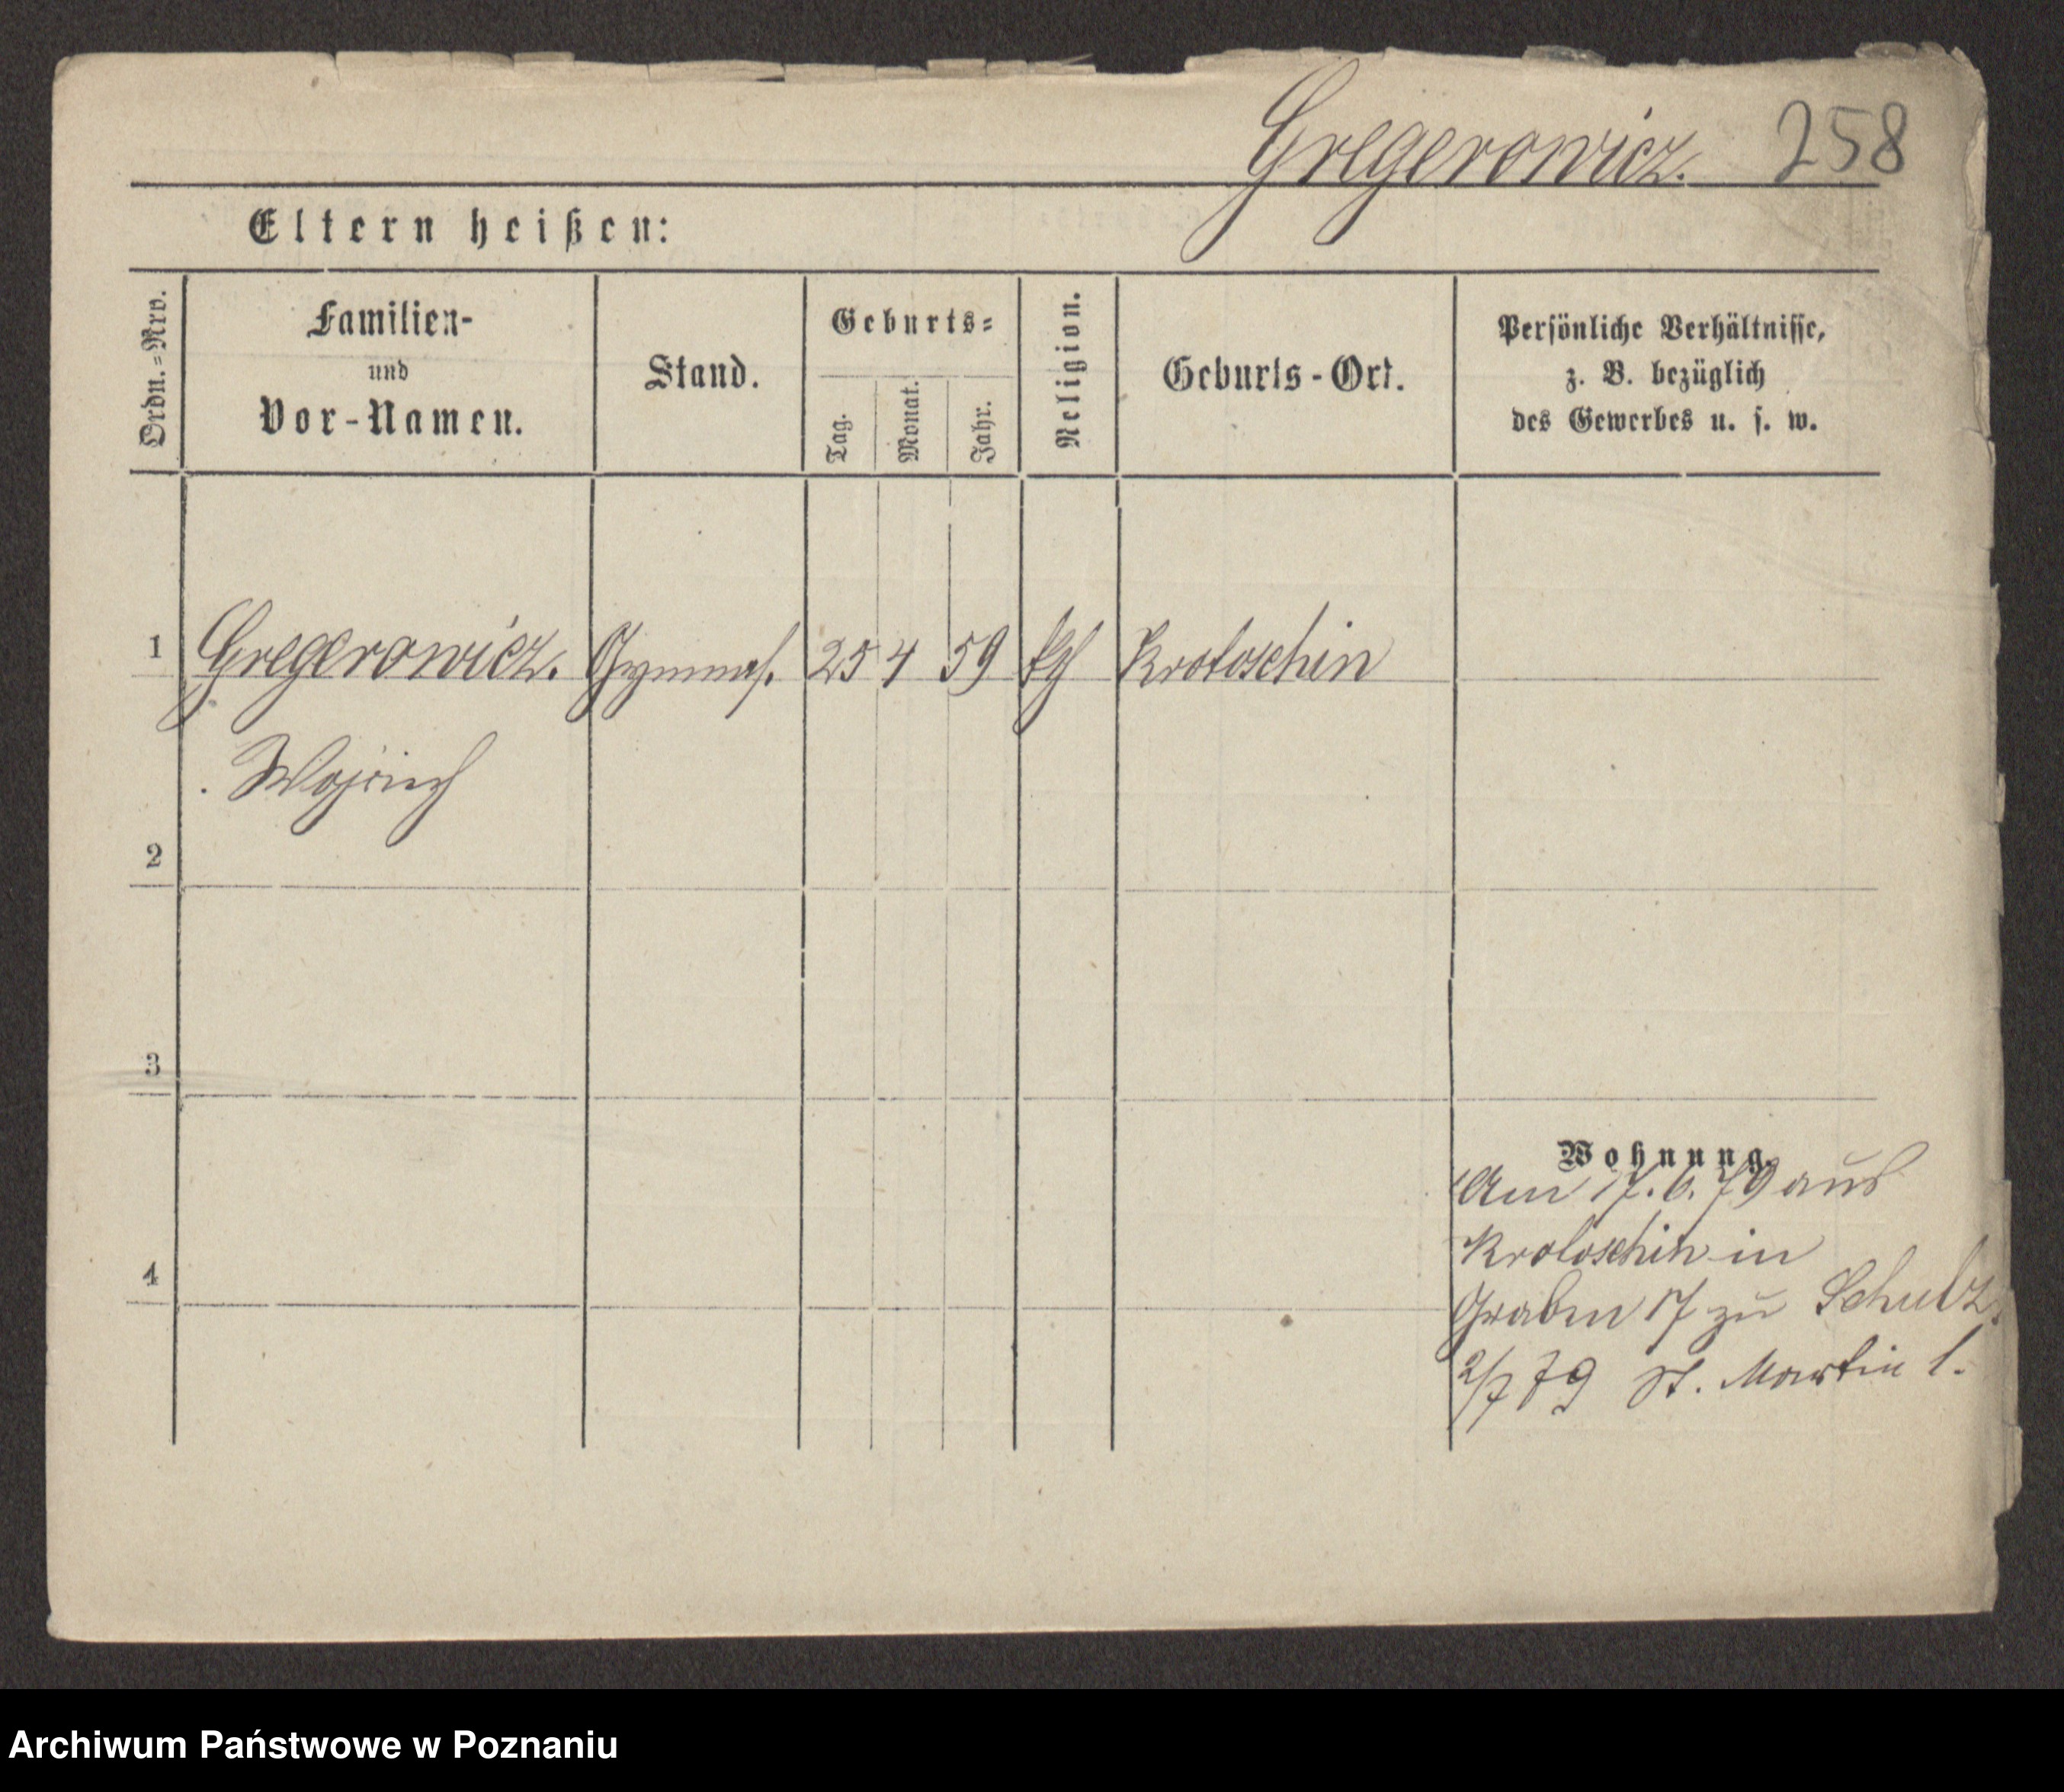 Gregerowicz. 258
Eltern heißen:
Ordn.=Nro.
Familien-
und
Vor-Namen.
Stand.
Geburts=
Tag.
Monat.
Jahr.
Religion.
Geburts-Ort.
Persönliche Verhältnisse,
z. B. bezüglich
des Gewerbes u. s. w.
1 Gregerowicz. Gymnas. 25 4 59 kth Krotoschin
Wojciech
2
3
Wohnung.
Am 17. 6. 79 aus
Krotoschin in
4
Graben 17 zu Schulz.
2/7 79 St. Martin 1.
Archiwum Państwowe w Poznaniu